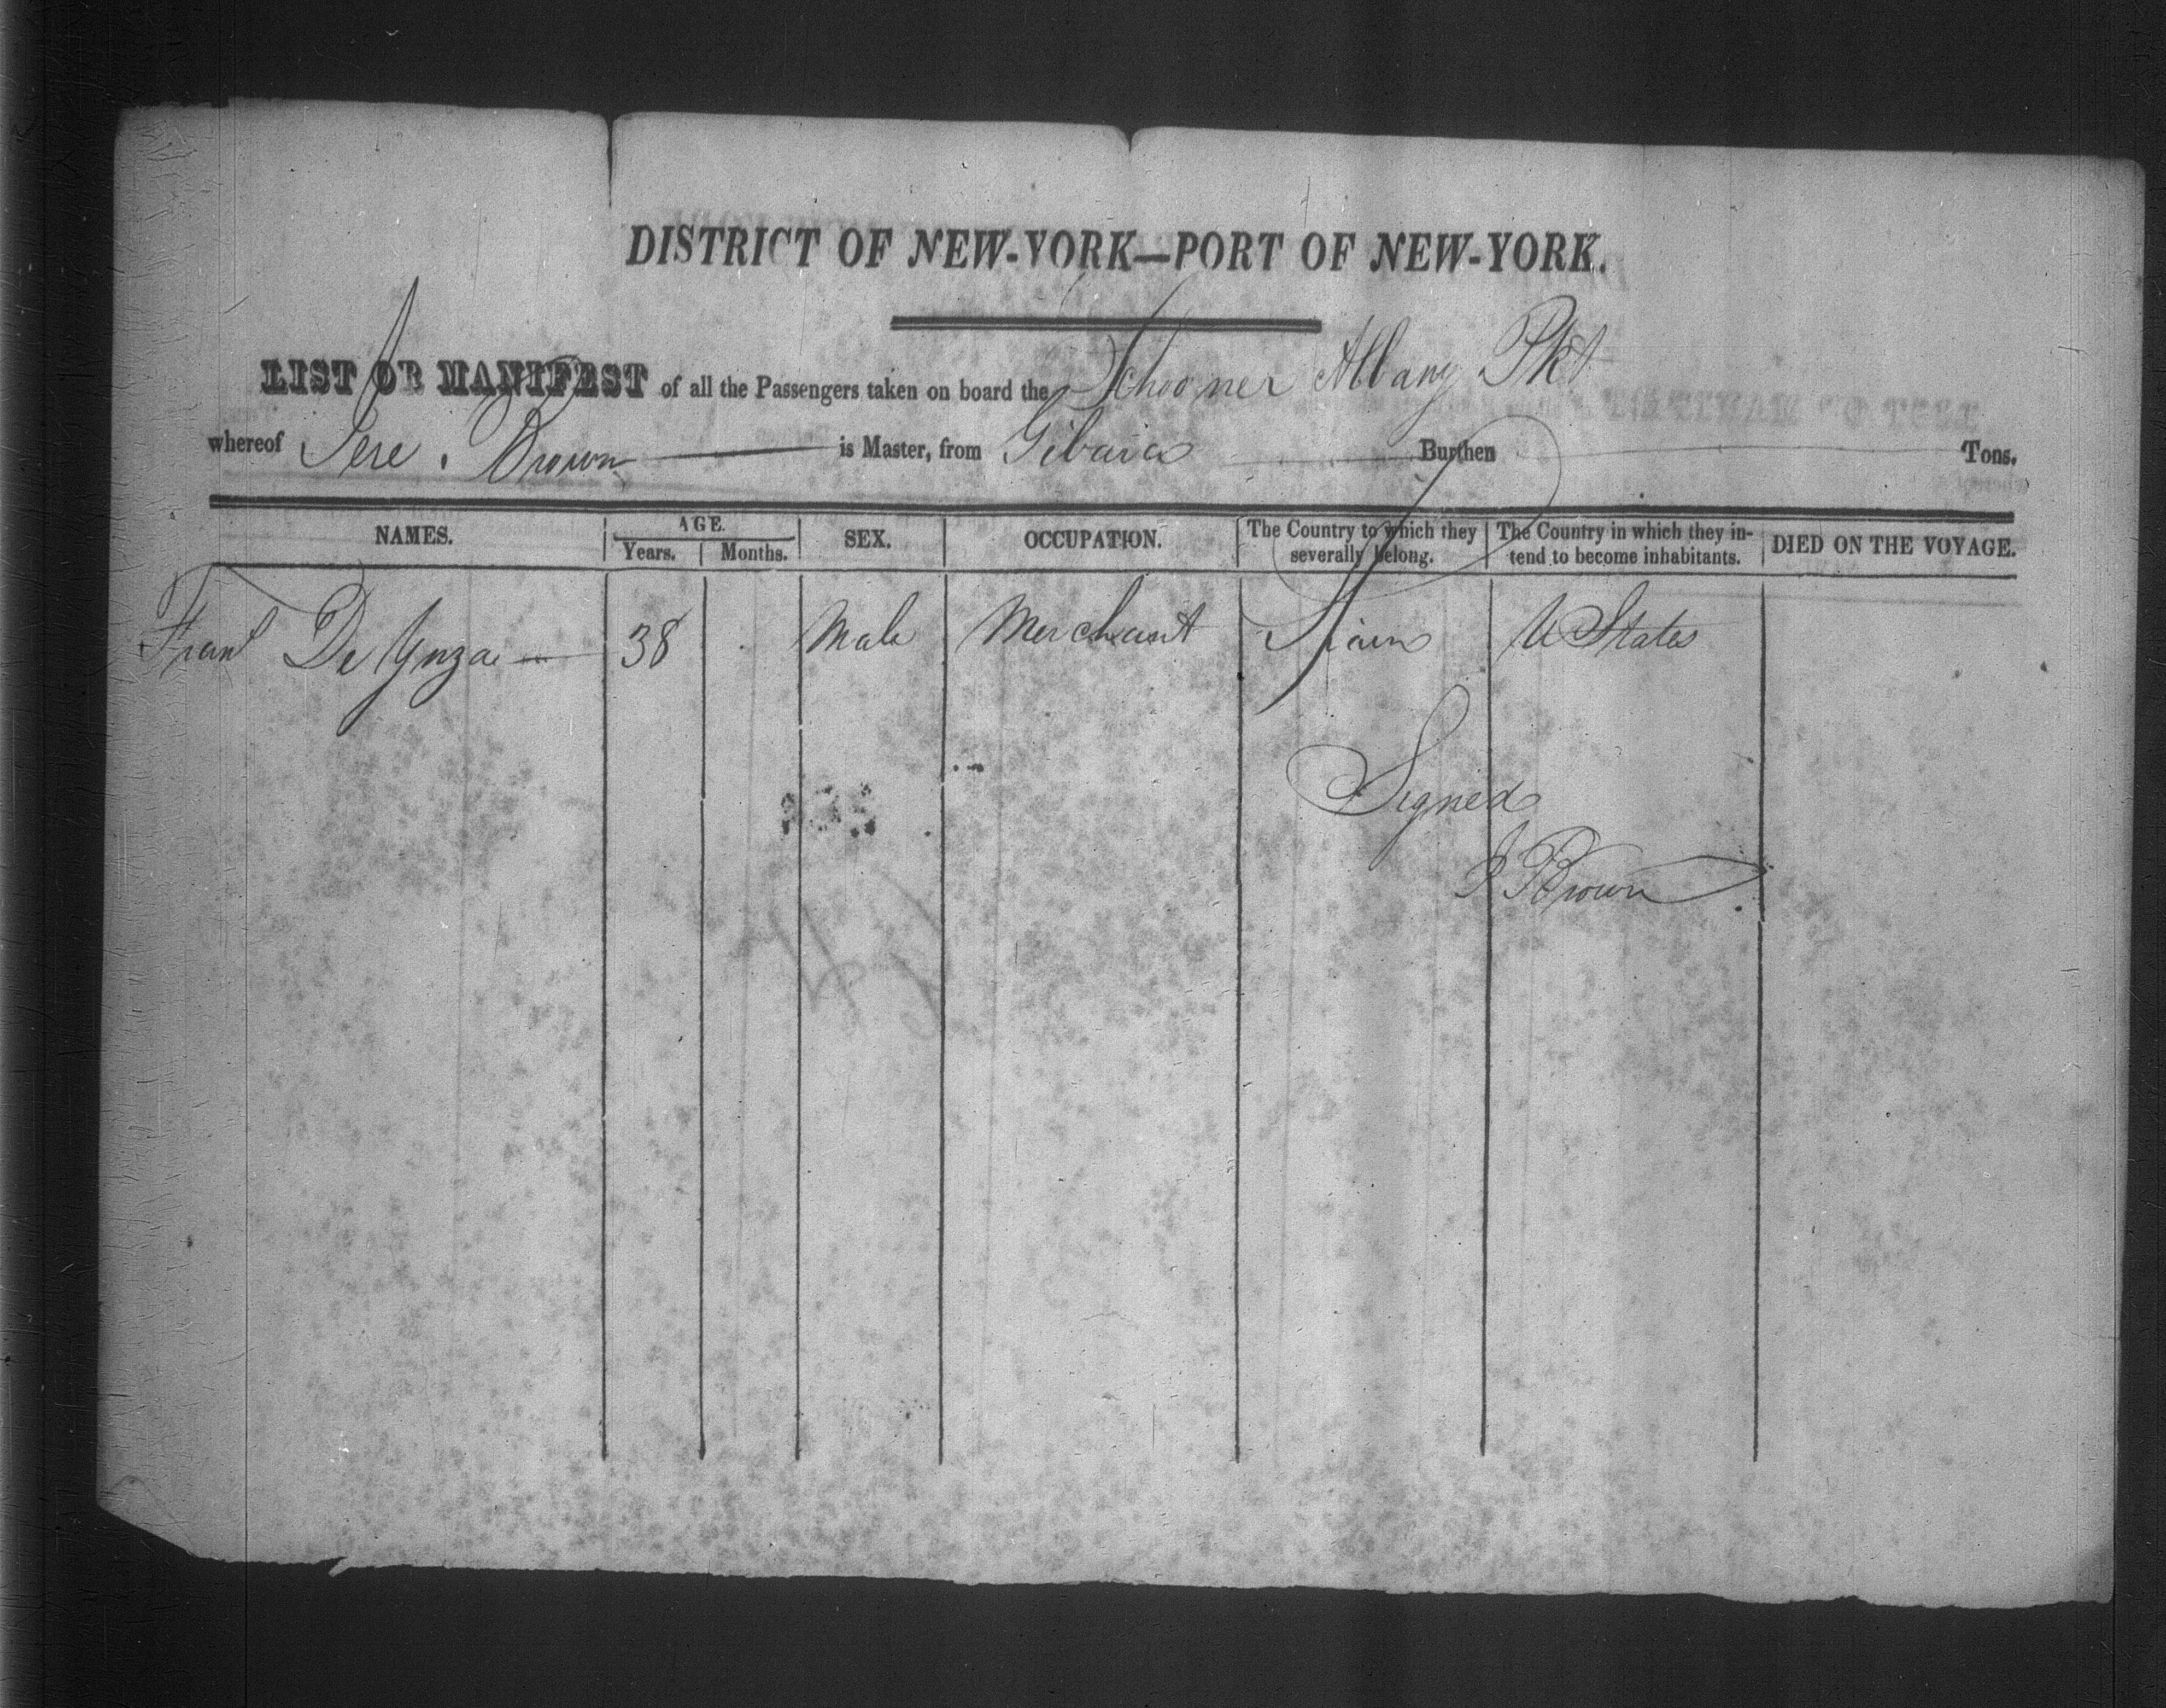 DISTRICT OF NEW-YORK—PORT OF NEW-YORK.
LIST OR MANIFEST of all the Passengers taken on board the Schooner Albany Pkt
whereof Jere. Brown is Master, from Gibara Burthen Tons.
NAMES. AGE. Years. Months. SEX. OCCUPATION. The Country to which they severally belong. The Country in which they intend to become inhabitants. DIED ON THE VOYAGE.
De Ynza 38 Male Merchant Spain U States
Signed
J Brown